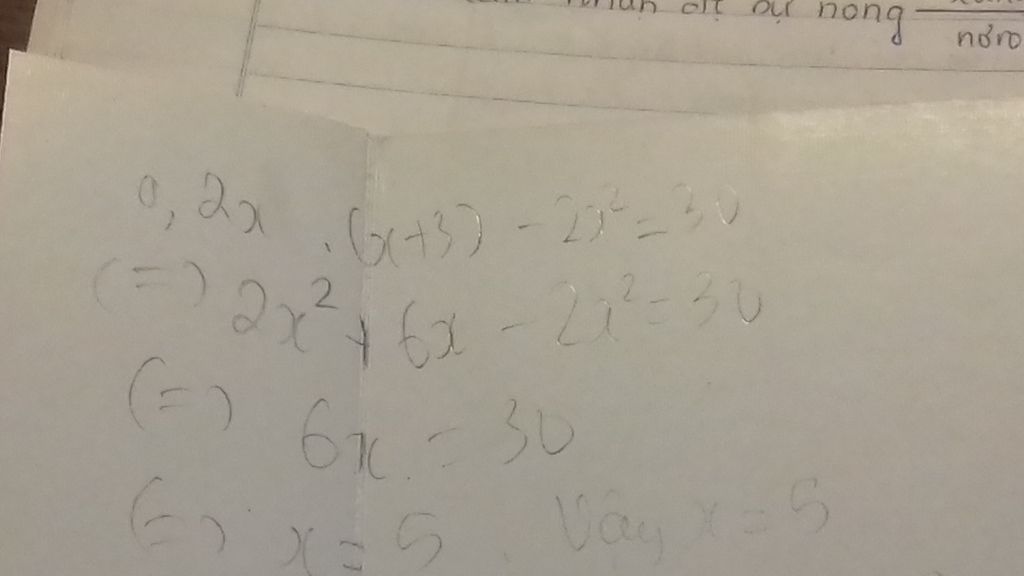 nhận đt bự nong
nóro
0, 2x . (x+3) - 2x² = 30
(=) 2x² + 6x - 2x² = 30
(=) 6x = 30
(=) x = 5. Vậy x = 5